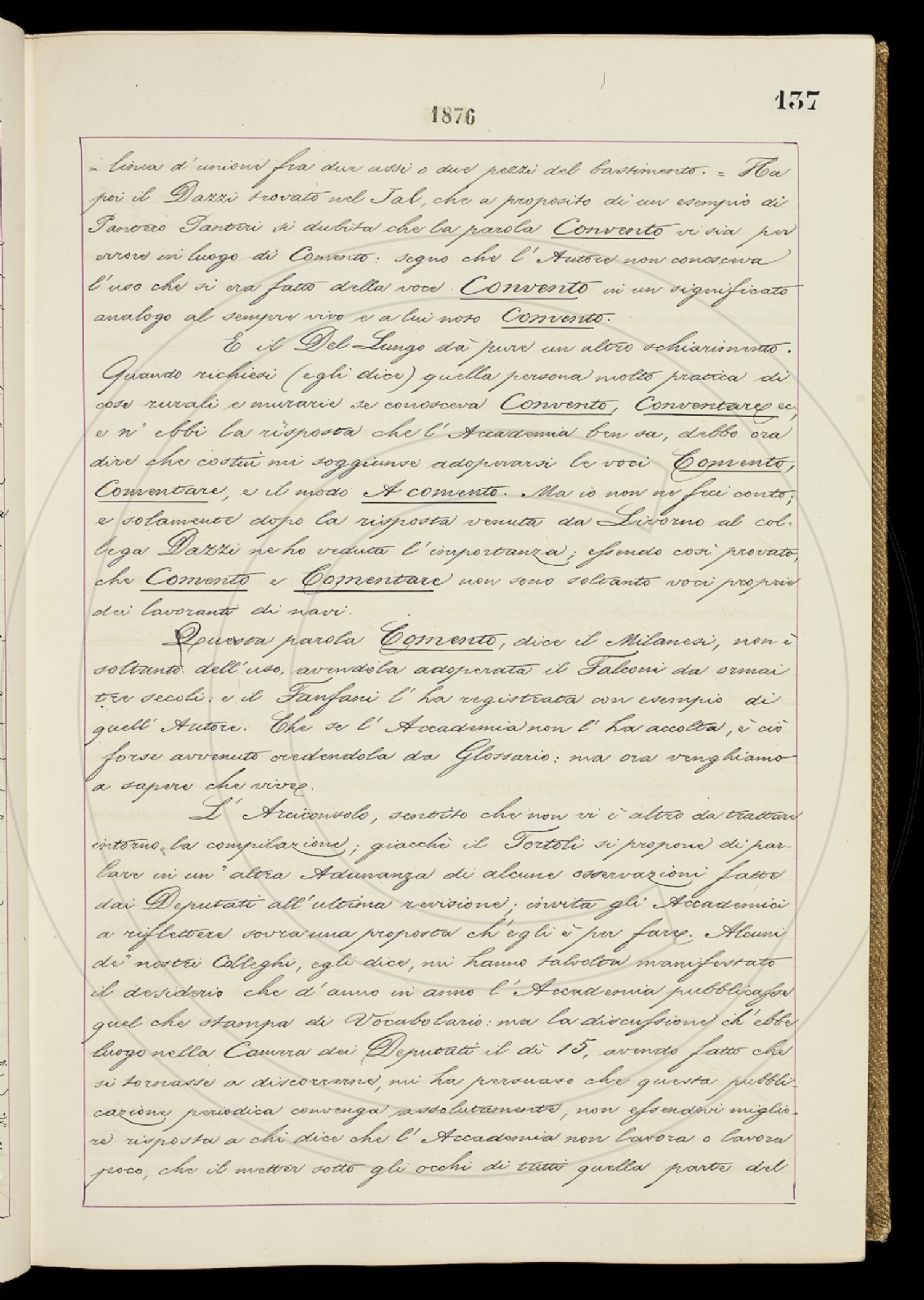 137
1876
= linea d'unione fra due assi o due pezzi del bastimento. = Ha
poi il Dazzi trovato nel Jal, che a proposito di un esempio di
Pantero Panteri si dubita che la parola Convento vi sia per
errore in luogo di Comento: segno che l'Autore non conosceva
l'uso che si era fatto della voce Convento in un significato
analogo al sempre vivo e a lui noto Comento.
E il Del-Lungo dà pure un altro schiarimento.
Quando richiesi (egli dice) quella persona molto pratica di
cose rurali e murarie se conosceva Convento, Conventare ec,
e n'ebbi la risposta che l'Accademia ben sa, debbo ora
dire che costui mi soggiunse adoperarsi le voci Comento,
Comentare, e il modo A comento. Ma io non ne feci conto;
e solamente dopo la risposta venuta da Livorno al col-
lega Dazzi ne ho veduta l'importanza; essendo così provato,
che Comento e Comentare non sono soltanto voci proprie
dei lavoranti di navi.
Questa parola Comento, dice il Milanesi, non è
soltanto dell'uso, avendola adoperata il Falconi da ormai
tre secoli: e il Fanfani l'ha registrata con esempio di
quell'Autore. Che se l'Accademia non l'ha accolta, è ciò
forse avvenuto credendola da Glossario: ma ora venghiamo
a sapere che vive.
L'Arciconsolo, sentito che non vi è altro da trattare
intorno la compilazione; giacchè il Tortoli si propone di par-
lare in un'altra Adunanza di alcune osservazioni fatte
dai Deputati all'ultima revisione; invita gli Accademici
a riflettere sovra una proposta ch'egli è per fare. Alcuni
de' nostri Colleghi, egli dice, mi hanno talvolta manifestato
il desiderio che d'anno in anno l'Accademia pubblicasse
quel che stampa di Vocabolario: ma la discussione ch'ebbe
luogo nella Camera dei Deputati il dì 15, avendo fatto che
si tornasse a discorrerne, mi ha persuaso che questa pubbli-
cazione periodica convenga assolutamente, non essendovi miglio-
re risposta a chi dice che l'Accademia non lavora o lavora
poco, che il metter sotto gli occhi di tutti quella parte del